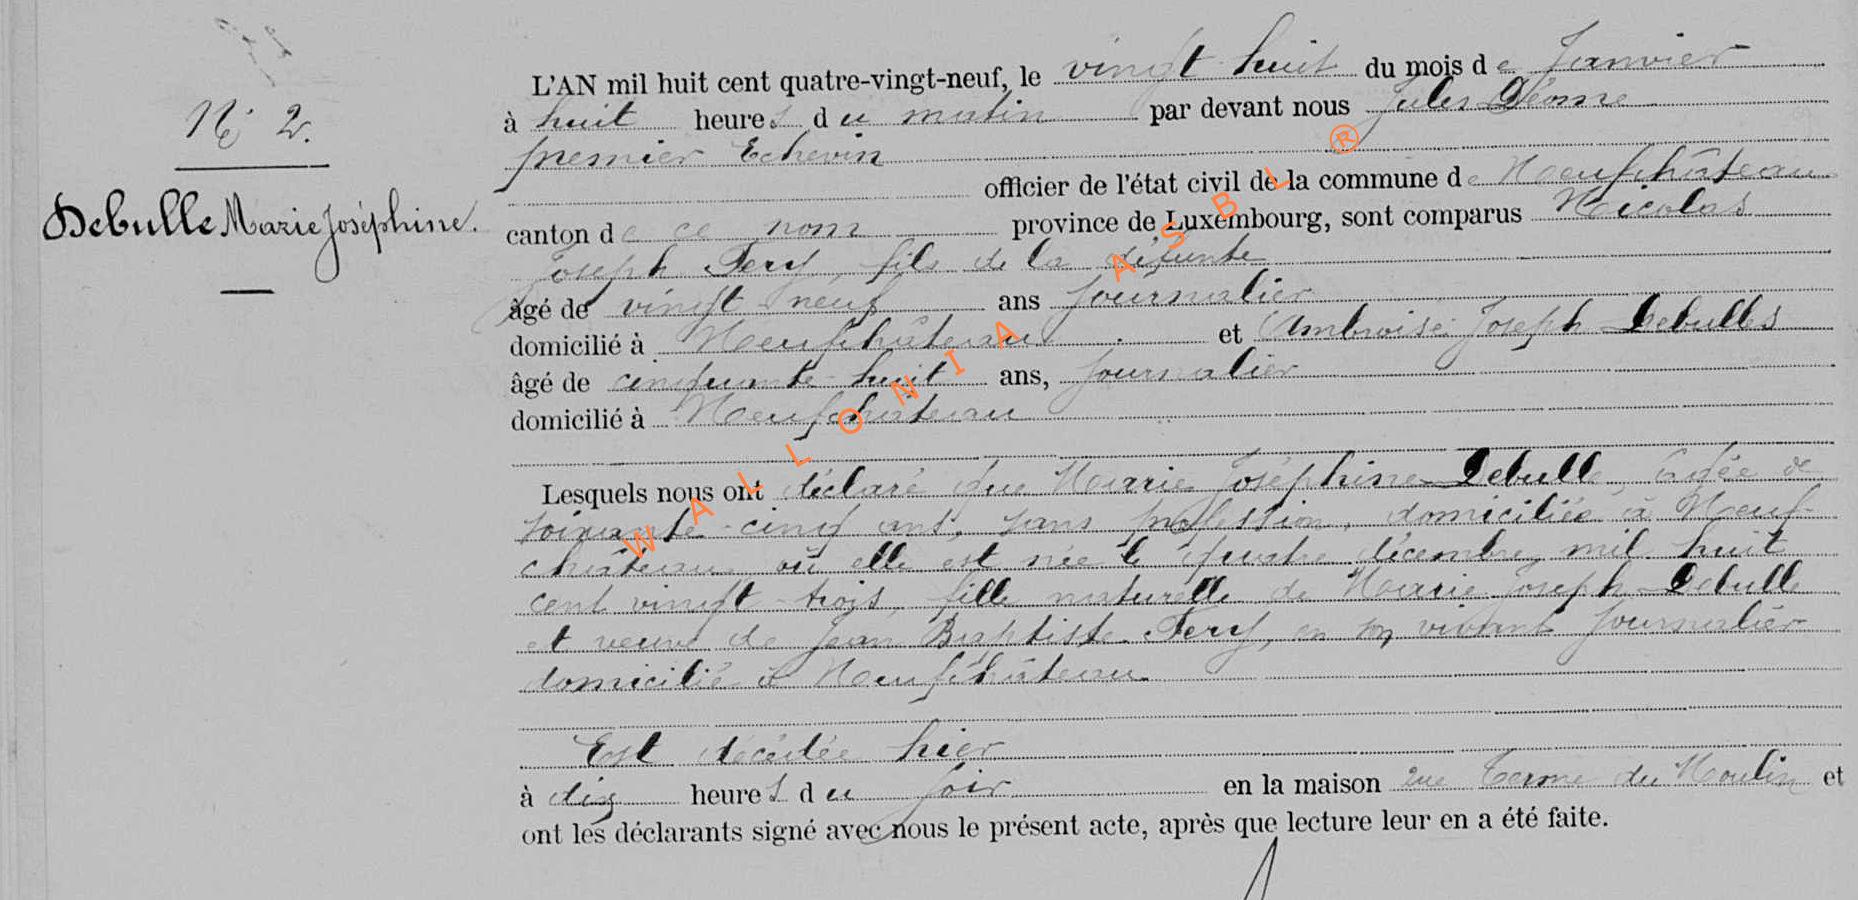 N° 2.
Debulle Marie Joséphine.
L'AN mil huit cent quatre-vingt-neuf, le vingt huit du mois de Janvier
à huit heures du matin par devant nous Jules
premier Echevin
officier de l'état civil de la commune de Neufchâteau
canton de ce nom province de Luxembourg, sont comparus Nicolas
Joseph Pery, fils de la défunte
âgé de vingt neuf ans journalier
domicilié à Neufchâteau et Ambroise Joseph Debulles
âgé de cinquante-huit ans, journalier
domicilié à Neufchâteau
Lesquels nous ont déclaré que Marie Joséphine Debulle, âgée de
soixante-cinq ans, sans profession, domiciliée à Neuf-
château où elle est née le quatre décembre mil huit
cent vingt-trois, fille naturelle de Marie Joseph Debulle
et veuve de Jean Baptiste Pery, en son vivant journalier
domicilié à Neufchâteau
Est décédée hier
à dix heures du soir en la maison rue Terme du Moulin et
ont les déclarants signé avec nous le présent acte, après que lecture leur en a été faite.
WALLONIA ASBL ®